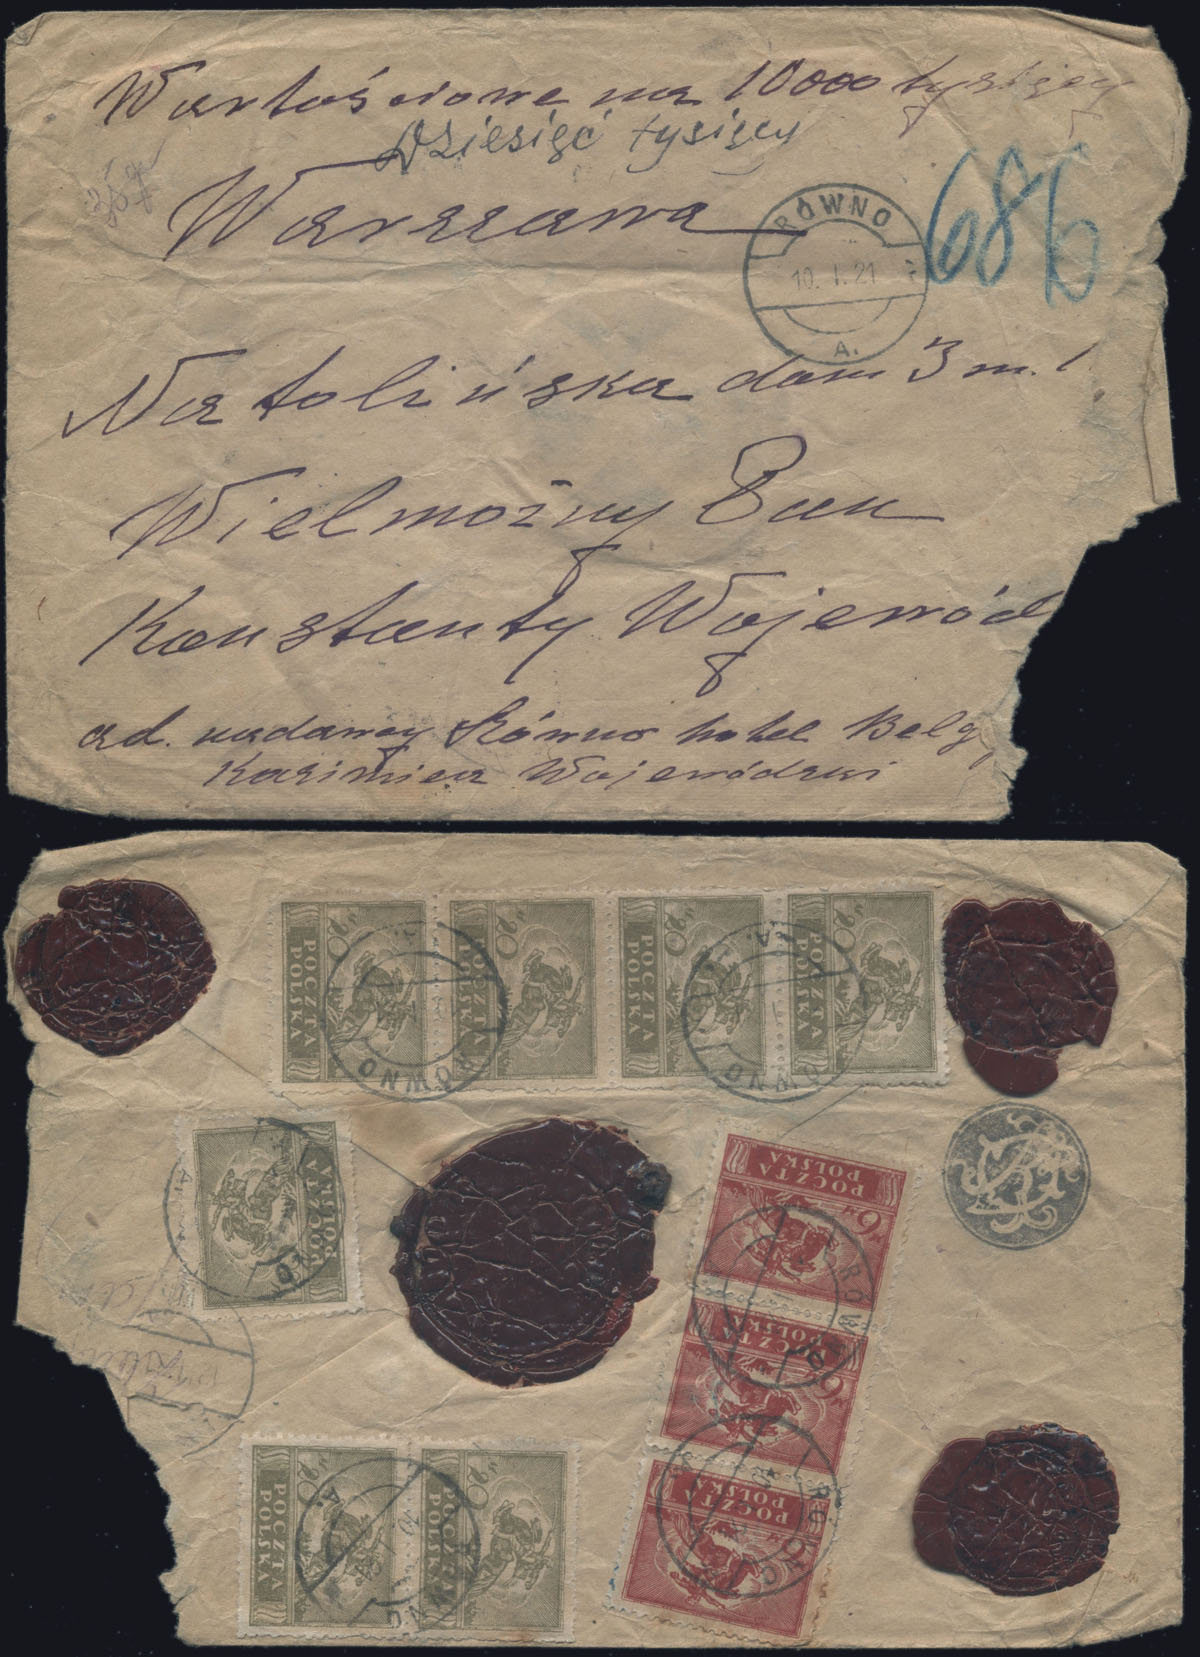 Wartościowe na 10000 tysięcy
Dziesięć tysięcy
Warszawa
RÓWNO
10. I. 21
A.
686
Natolińska dom 3 m. 1
Wielmożny Pan
Konstanty Wojewód
ad. nadawcy Równo hotel Belg
Kazimierz Wojewódzki
20 POCZTA POLSKA
20 POCZTA POLSKA
20 POCZTA POLSKA
20 POCZTA POLSKA
A.
ÓWNO
A.
ÓWNO
POCZTA POLSKA
A.
6 M POCZTA POLSKA
6 M POCZTA POLSKA
POCZTA POLSKA
RÓWNO
RÓWNO
20 POCZTA POLSKA
20 POCZTA POLSKA
A.